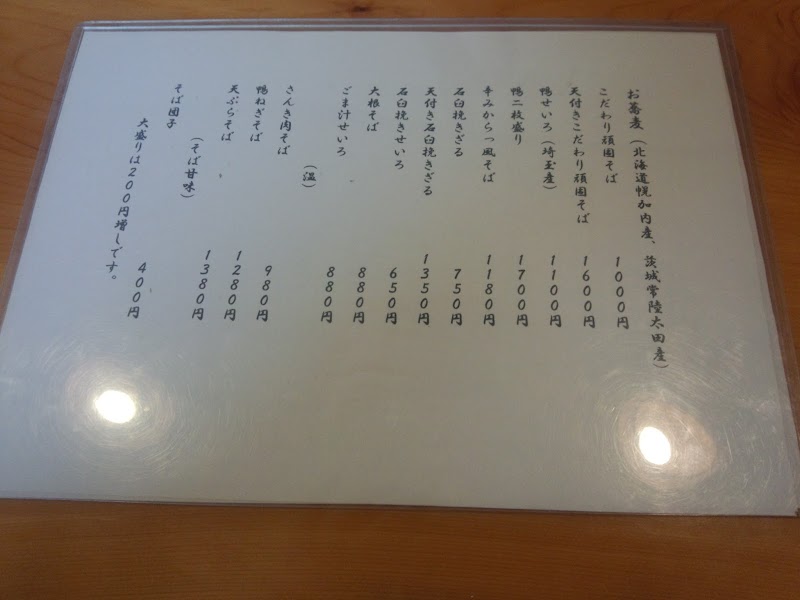 お蕎麦（北海道幌加内産、茨城常陸太田産）
こだわり頑固そば　1000円
天付きこだわり頑固そば　1600円
鴨せいろ（埼玉産）　1100円
鴨二枚盛り　1700円
辛みからつ風そば　1180円
石臼挽きざる　750円
天付き石臼挽きざる　1350円
石臼挽きせいろ　650円
大根そば　880円
ごま汁せいろ　880円
（温）
さんき肉そば　980円
鴨ねぎそば　1280円
天ぷらそば　1380円
（そば甘味）
そば団子　400円
大盛りは200円増しです。